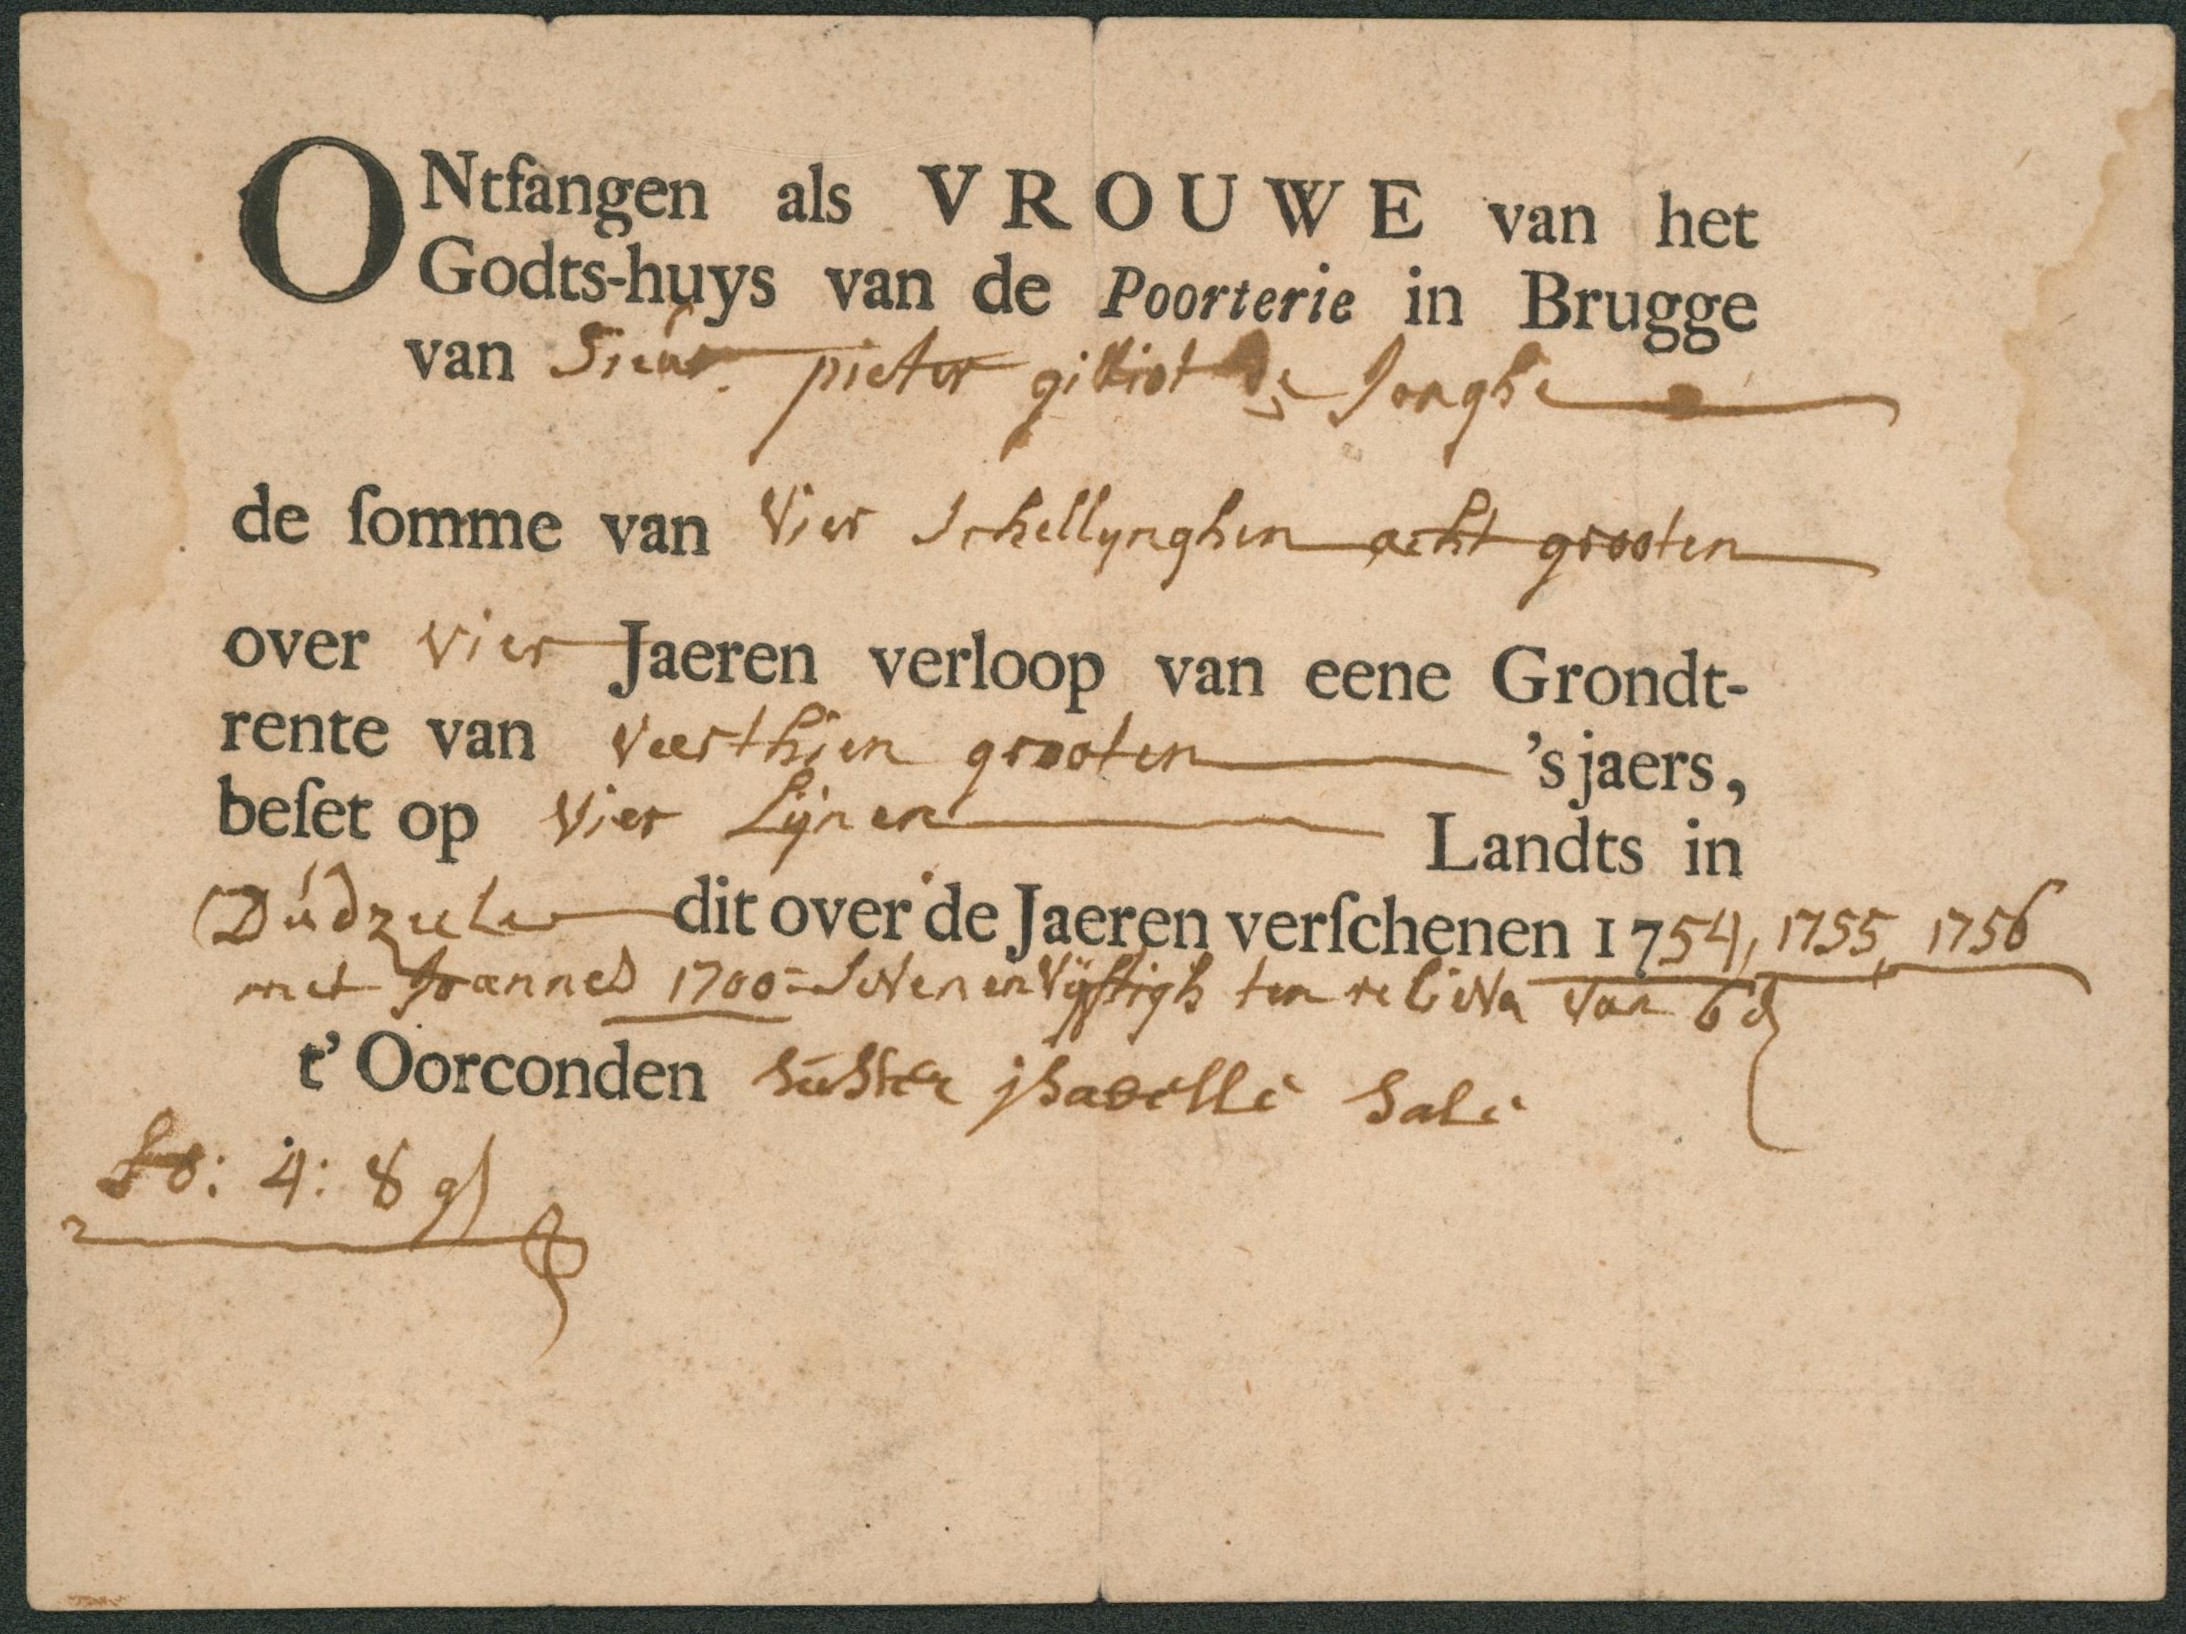 ONtfangen als VROUWE van het
Godts-huys van de Poorterie in Brugge
van Sieur. pieter gilliot de Jonghe
de ſomme van Vier schellynghen acht grooten
over vier Jaeren verloop van eene Grondt-
rente van veerthien grooten 's jaers,
beſet op Vier Lijnen Landts in
Dúdzeele dit over de Jaeren verſchenen 1754, 1755, 1756
met Joannes 1700= seven en vijftigh ten van 6
t' Oorconden suster isabelle sale
£0: 4: 8 g